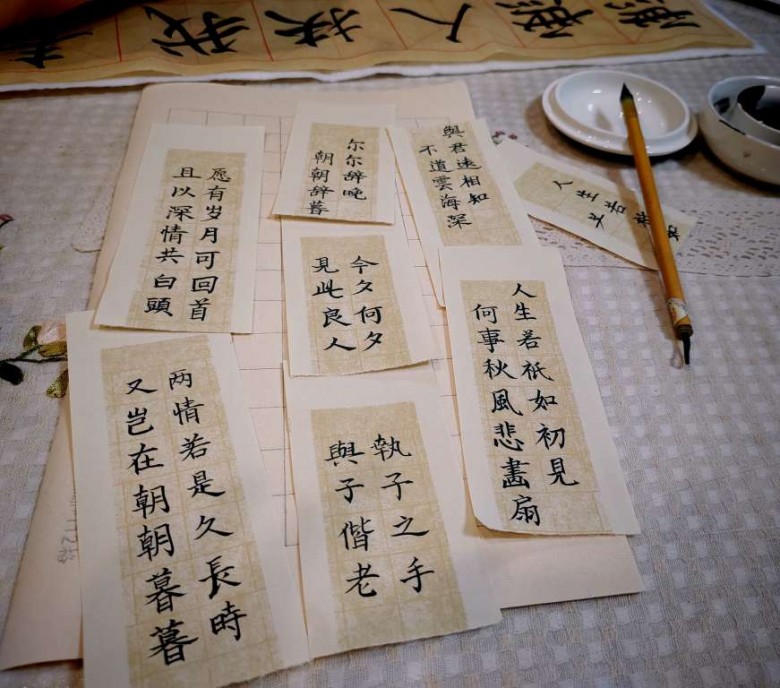 愿有岁月可回首
且以深情共白頭
尔尔辞晚
朝朝辞暮
與君遠相知
不道雲海深
今夕何夕
見此良人
人生若祇如初見
何事秋風悲畫扇
两情若是久長時
又豈在朝朝暮暮
執子之手
與子偕老
無人扶我
人生